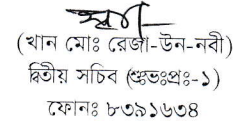 (খান মোঃ রেজা-উন-নবী)
দ্বিতীয় সচিব (শুল্কঃপ্রঃ-১)
ফোনঃ ৮৩৯১৬৩৪